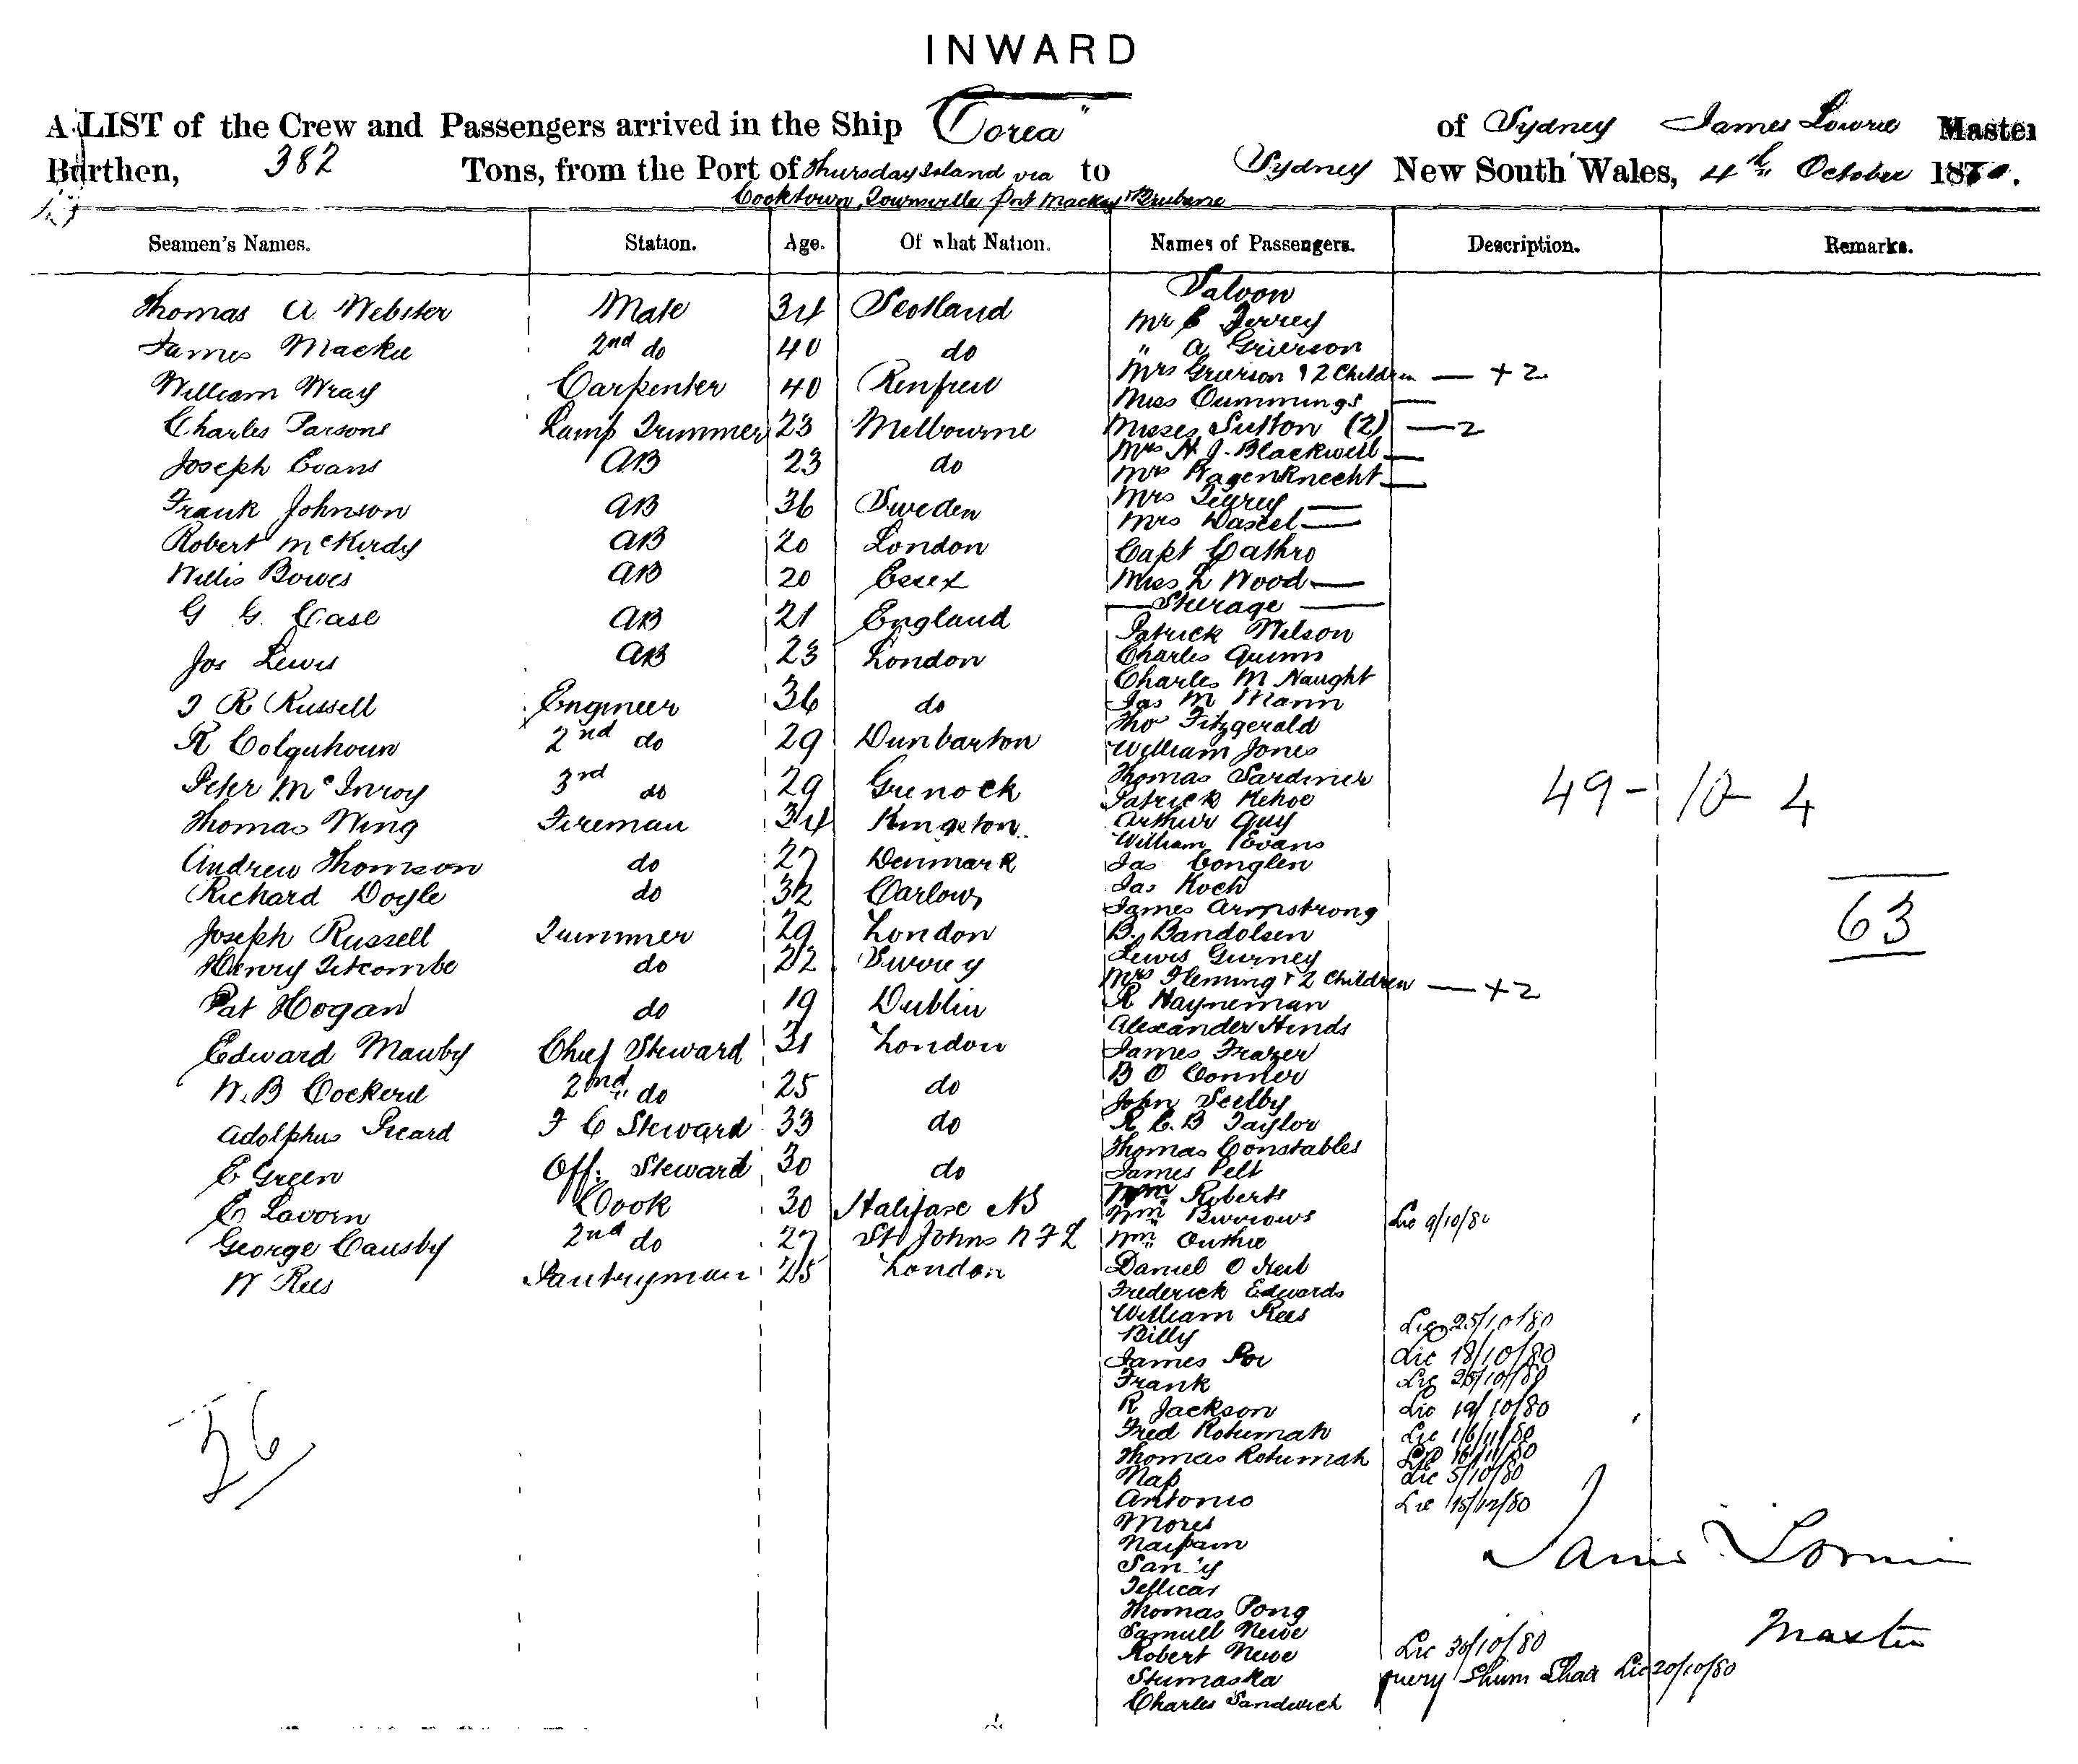 INWARD
A LIST of the Crew and Passengers arrived in the Ship "Corea" of Sydney James Lowrie Master
Burthen, 382 Tons, from the Port of Thursday Island via to Sydney New South Wales, 4th October 1880.
Cooktown, Townsville Port Mackay & Brisbane
Seamen's Names. Station. Age. Of what Nation. Names of Passengers. Description. Remarks.
Thomas A Webster Mate 34 Scotland
James Mackie 2nd do 40 do
William Wray Carpenter 40 Renfrew
Charles Parsons Lamp Trimmer 23 Melbourne
Joseph Evans AB 23 do
Frank Johnson AB 36 Sweden
Robert McKirdy AB 20 London
Willis Bowes AB 20 Essex
G G. Case AB 21 England
Jos Lewis AB 23 London
J R Russell Engineer 36 do
R Colquhoun 2nd do 29 Dunbarton
Peter McInroy 3rd do 29 Greenock
Thomas Wing Fireman 34 Kingston
Andrew Thomson do 27 Denmark
Richard Doyle do 32 Carlow
Joseph Russell Trimmer 29 London
Henry Titcombe do 22 Surrey
Pat Hogan do 19 Dublin
Edward Mawby Chief Steward 31 London
W. B Cockerd 2nd do 25 do
Adolphus Picard F C Steward 33 do
E Green Off. Steward 30 do
E Lavorn Cook 30 Halifax NS
George Causby 2nd do 27 St Johns N F L
W Rees Pantryman 25 London
26
Saloon
Mr C Terrey
" A Grierson
Mrs Grierson & 2 Children — +2
Miss Cummings —
Misses Sutton (2) — 2
Mrs H J. Blackwell —
Mrs Wagenknecht —
Mrs Terrey —
Mrs Dassel —
Capt Cathro
Miss L Wood —
— Steerage —
Patrick Wilson
Charles Quinn
Charles M Naught
Jas M Mann
Tho Fitzgerald
William Jones
Thomas Sardiner
Patrick Kehoe
Arthur Guy
William Evans
Jas Conglen
Jas Koch
James Armstrong
B. Bandolsen
Lewis Gurney
Mrs Fleming & 2 Children — +2
R Hayneman
Alexander Hinds
James Frazer
B O Connor
John Selby
R C. B Taylor
Thomas Constables
James Pelt
Wm Roberts
Wm Burrows Lic 9/10/80
Wm Guthrie
Daniel O Neil
Frederick Edwards
William Rees Lic 25/10/80
Billy
James Poi Lic 18/10/80
Frank Lic 25/10/80
R Jackson Lic 19/10/80
Fred Rotumah Lic 16/11/80
Thomas Rotumah Lic 16/11/80
Nap Lic 5/10/80
Antonio Lic 15/12/80
Mores
Naipam
Tellicar
Thomas Pong
Samuel Newe
Robert Newe Lic 30/10/80
Stumaska query Shum Shaa Lic 20/10/80
Charles Sandwich
49 - 10 - 4
63
James Lowrie
Master